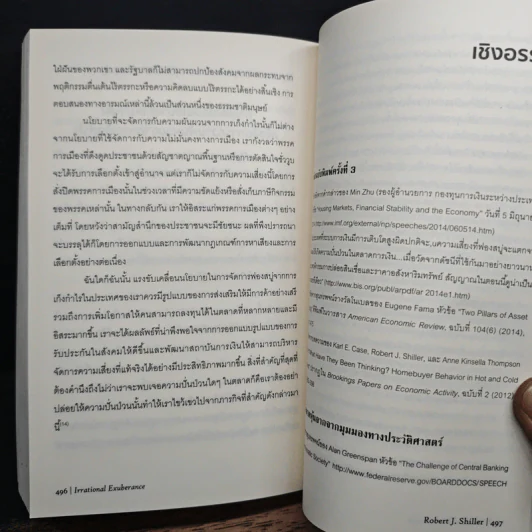 ใฝ่ฝันของพวกเขา และรัฐบาลก็ไม่สามารถปกป้องสังคมจากผลกระทบจาก
พฤติกรรมตื่นเต้นไร้ตรรกะหรือความคิดลบแบบไร้ตรรกะได้อย่างสิ้นเชิง การ
ตอบสนองทางอารมณ์เหล่านี้ล้วนเป็นส่วนหนึ่งของธรรมชาติมนุษย์
นโยบายที่จะจัดการกับความผันผวนจากการเก็งกำไรนั้นก็ไม่ต่าง
จากนโยบายที่ใช้จัดการกับความไม่มั่นคงทางการเมือง เรากังวลว่าพรรค
การเมืองที่ดึงดูดประชาชนด้วยสัญชาตญาณพื้นฐานหรือการตัดสินใจชั่ววูบ
จะได้รับการเลือกตั้งเข้าสู่อำนาจ แต่เราก็ไม่จัดการกับความเสี่ยงนี้โดยการ
สั่งปิดพรรคการเมืองนั้นในช่วงเวลาที่มีความขัดแย้งหรือสั่งเก็บภาษีกิจกรรม
ของพรรคเหล่านั้น ในทางกลับกัน เราให้อิสระแก่พรรคการเมืองต่างๆ อย่าง
เต็มที่ โดยหวังว่าสามัญสำนึกของประชาชนจะมีชัยชนะ ผลที่พึงปรารถนา
จะบรรลุได้ก็โดยการออกแบบและการพัฒนากฎเกณฑ์การหาเสียงและการ
เลือกตั้งอย่างต่อเนื่อง
ฉันใดก็ฉันนั้น แรงขับเคลื่อนนโยบายในการจัดการฟองสบู่จากการ
เก็งกำไรในประเทศของเราควรมีรูปแบบของการส่งเสริมให้มีการค้าอย่างเสรี
รวมถึงการเพิ่มโอกาสให้คนสามารถลงทุนได้ในตลาดที่หลากหลายและมี
อิสระมากขึ้น เราจะได้ผลลัพธ์ที่น่าพึงพอใจจากการออกแบบรูปแบบของการ
รับประกันในสังคมให้ดีขึ้นและพัฒนาสถาบันการเงินให้สามารถบริหาร
จัดการความเสี่ยงที่แท้จริงได้อย่างมีประสิทธิภาพมากขึ้น สิ่งที่สำคัญที่สุดที่
ต้องคำนึงถึงไม่ว่าเราจะพบเจอความปั่นป่วนใดๆ ในตลาดก็คือเราต้องอย่า
ปล่อยให้ความปั่นป่วนนั้นทำให้เราไขว้เขวไปจากภารกิจที่สำคัญดังกล่าวมา
496 | Irrational Exuberance
เชิงอรร
พิมพ์ครั้งที่ 3
กล่าวของ Min Zhu (รองผู้อำนวยการ กองทุนการเงินระหว่างประเท
Housing Markets, Financial Stability and the Economy" วันที่ 5 มิถุนาย
http://www.imf.org/external/np/speeches/2014/060514.htm)
http://www.bis.org/publ/arpdf/ar 2014e1.htm)
รางวัลโนเบลของ Eugene Fama หัวข้อ "Two Pillars of Asset
American Economic Review, ฉบับที่ 104(6) (2014),
ของ Karl E. Case, Robert J. Shiller, และ Anne Kinsella Thompson
Have They Been Thinking? Homebuyer Behavior in Hot and Cold
Brookings Papers on Economic Activity, ฉบับที่ 2 (2012)
ตลาดจากมุมมองทางประวัติศาสตร์
ของ Alan Greenspan หัวข้อ "The Challenge of Central Banking
Society" http://www.federalreserve.gov/BOARDDOCS/SPEECH
Robert J. Shiller | 497